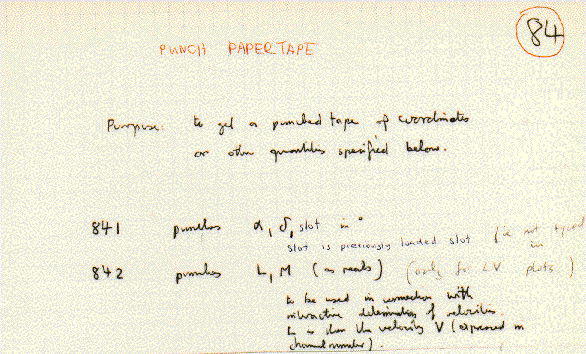 84
PUNCH PAPERTAPE
Purpose: to get a punched tape of coordinates
or other quantities specified below.
841 punches α, δ, slot in °
slot is previously loaded slot (ie not typed in
842 punches L, M (as reals) (only for LV plots)
to be used in connection with
interactive determination of velocities
L is then the velocity V (expressed in
channel number).